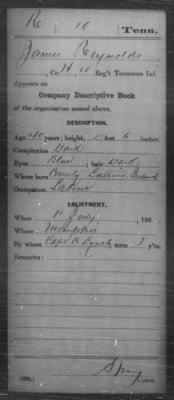 R 10 Tenn.
James Reynolds
, Co. H, 10 Reg't Tennessee Inf.
Appears on
Company Descriptive Book
of the organization named above.
DESCRIPTION.
Age 40 years; height, 5 feet 6 inches.
Complexion Dark
Eyes Blue; hair Dark
Where born County
Occupation Labour
ENLISTMENT.
When 11 July, 186
Where Memphis
By whom Capt term 3 y'rs.
Remarks:
Copyist.